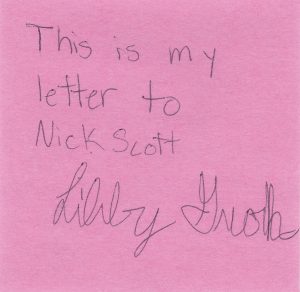 This is my
letter to
Nick Scott
Libby